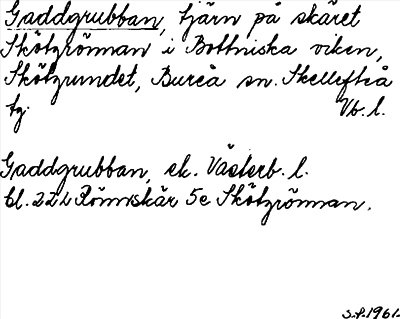 Gaddgrubban, tjärn på skäret
Skötgrönnan i Bottniska viken,
Skötgrundet, Bureå sn. Skellefteå
tg. Vb. l.
Gaddgrubban, ek. Västerb. l.
bl. 22 L Rönnskär 5e Skötgrönnan.
S.f. 1961.